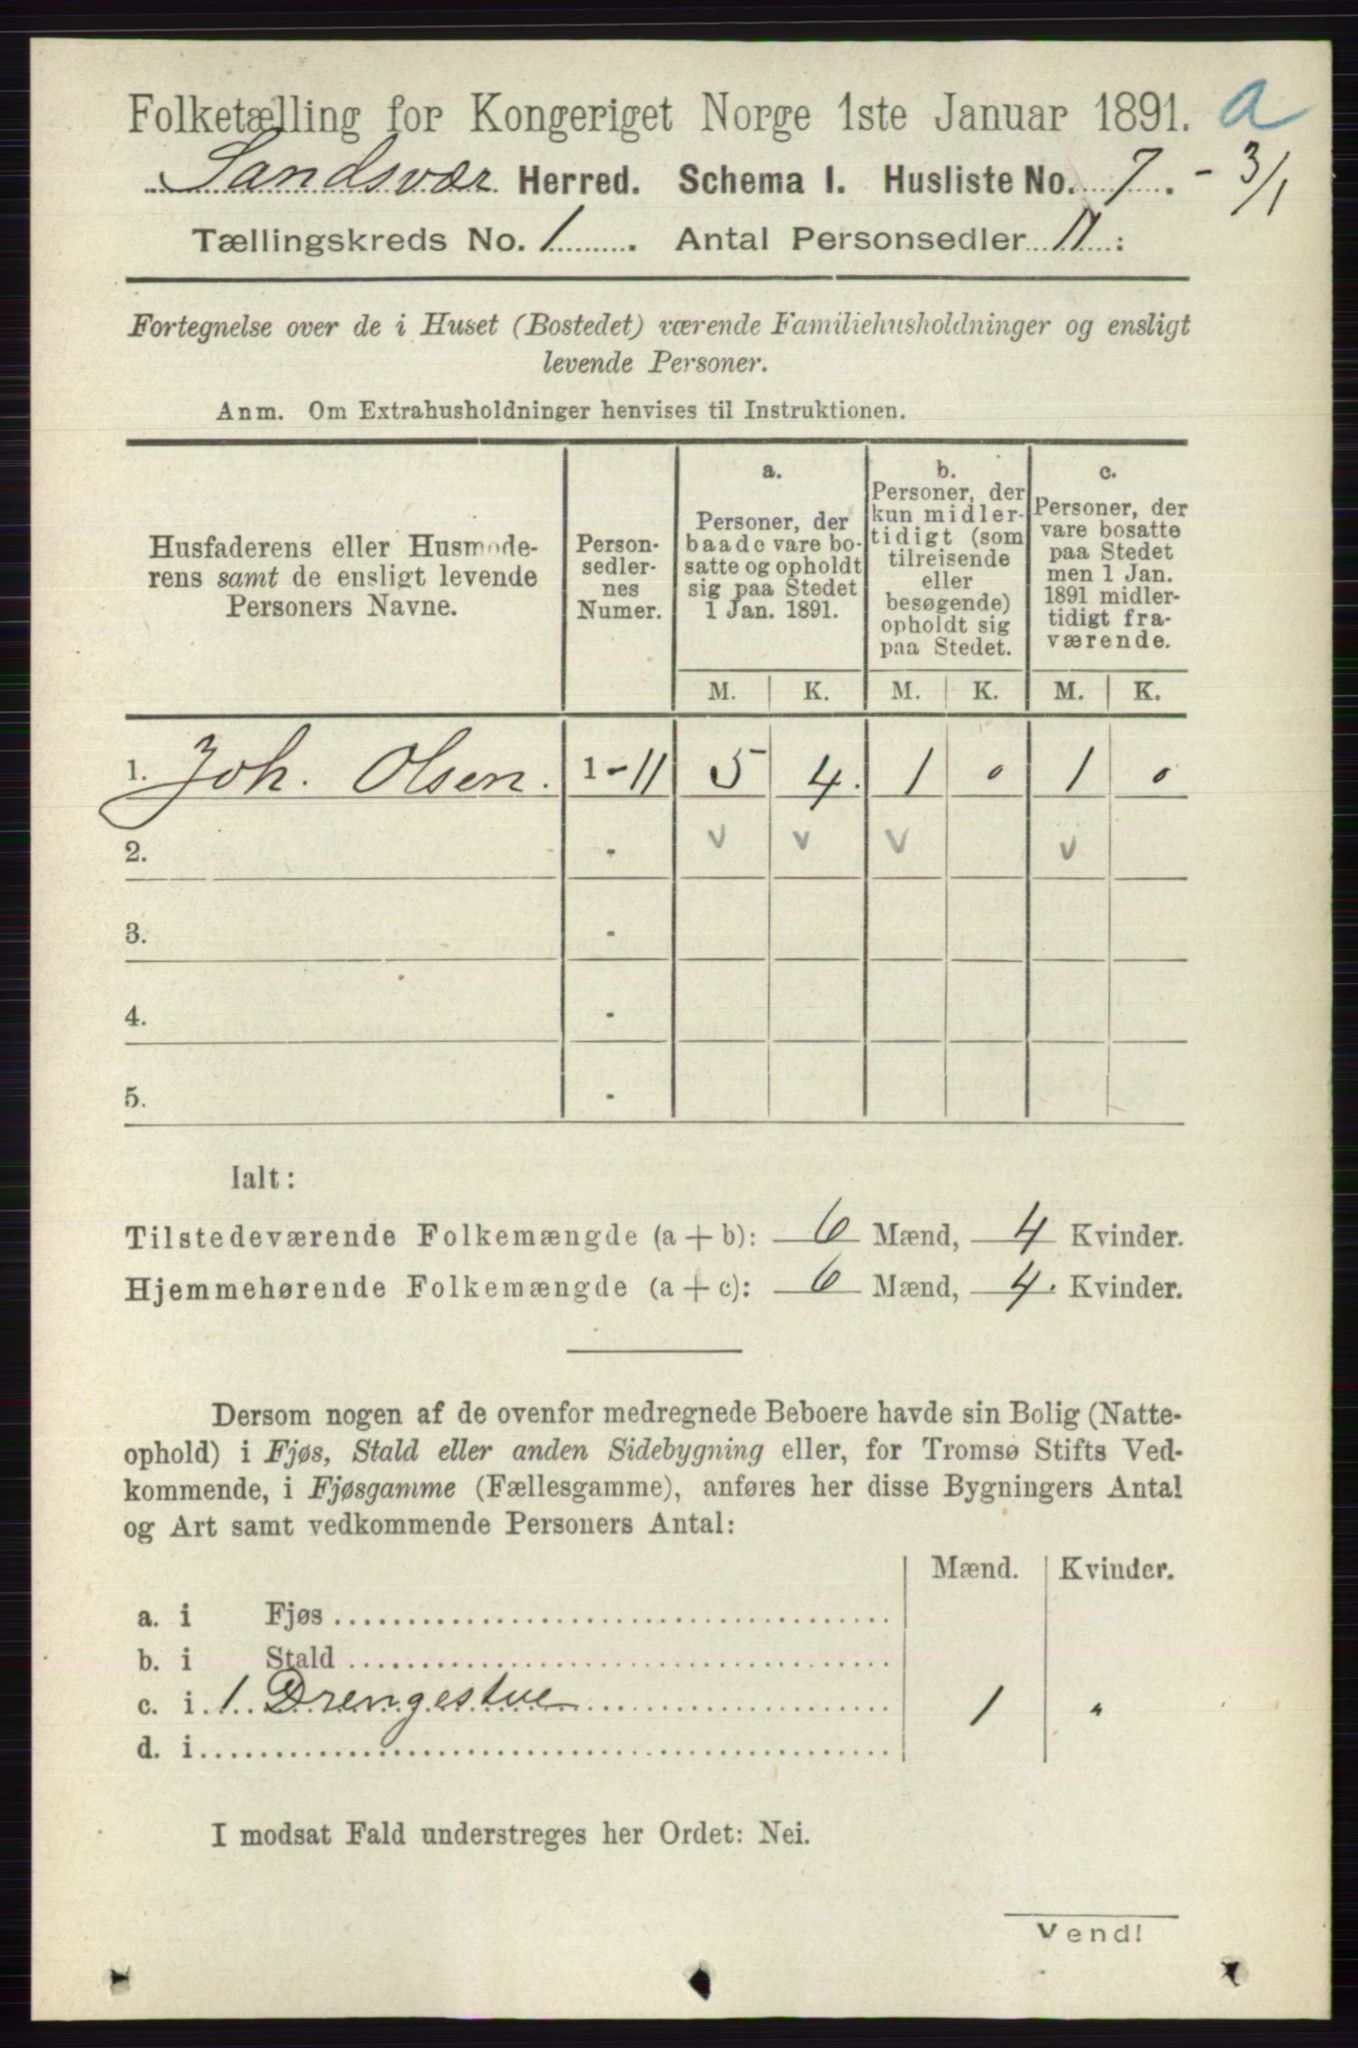 Folketælling for Kongeriget Norge 1ste Januar 1891. a
Sandsvær Herred. Schema I. Husliste No. 7. - 3/1
Tællingskreds No. 1. Antal Personsedler 11:
Fortegnelse over de i Huset (Bostedet) værende Familiehusholdninger og ensligt
levende Personer.
Anm. Om Extrahusholdninger henvises til Instruktionen.
Husfaderens eller Husmode-
rens samt de ensligt levende
Personers Navne.
Person-
sedler-
nes
Numer.
a.
Personer, der
baade vare bo-
satte og opholdt
sig paa Stedet
1 Jan. 1891.
b.
Personer, der
kun midler-
tidigt (som
tilreisende
eller
besøgende)
opholdt sig
paa Stedet.
c.
Personer, der
vare bosatte
paa Stedet
men 1 Jan.
1891 midler-
tidigt fra-
værende.
M. K. M. K. M. K.
1. Joh. Olsen. 1-11 5 4. 1 0 1 0
2. - v v v v
3. -
4. -
5. -
Ialt:
Tilstedeværende Folkemængde (a + b): 6 Mænd, 4 Kvinder.
Hjemmehørende Folkemængde (a + c): 6 Mænd, 4. Kvinder.
Dersom nogen af de ovenfor medregnede Beboere havde sin Bolig (Natte-
ophold) i Fjøs, Stald eller anden Sidebygning eller, for Tromsø Stifts Ved-
kommende, i Fjøsgamme (Fællesgamme), anføres her disse Bygningers Antal
og Art samt vedkommende Personers Antal:
Mænd. Kvinder.
a. i Fjøs
b. i Stald
c. i 1 Drengestue 1 "
d. i
I modsat Fald understreges her Ordet: Nei.
Vend!